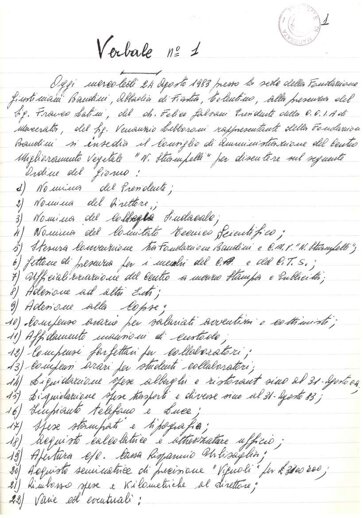 1
Verbale n° 1
Oggi mercoledì 24 Agosto 1983 presso la sede della Fondazione
Giustiniani Bandini, Abbadia di Fiastra, Tolentino, alla presenza del
Sig. Franco, del dr. Fabio Presidente della C.C.I.A. di
Macerata, del Sig. Venanzio rappresentante della Fondazione
Bandini si insedia il Consiglio di amministrazione del Centro
Miglioramento Vegetale "N. Strampelli" per discutere sul seguente
Ordine del giorno:
1) Nomina del Presidente;
2) Nomina del Direttore;
3) Nomina del Collegio Sindacale;
4) Nomina del Comitato Tecnico Scientifico;
5) Stesura Convenzione tra Fondazione Bandini e C.M.V. "N. Strampelli";
6) Gettone di presenza per i membri del C.A. e del C.T.S.;
7) Ufficializzazione del Centro a mezzo Stampa e Pubblicità;
8) Adesione ad altri Enti;
9) Adesione alla
10) Compenso orario per salariati avventizi e cottimisti;
11) Affidamento mansioni di custode;
12) Compensi forfettari per collaboratori;
13) Compensi orari per studenti collaboratori;
14) Liquidazione spese alberghi e ristoranti sino al 31 Agosto
15) Liquidazione spese trasporti e diverse sino al 31 Agosto 83;
16) Impianto telefono e Luce;
17) Spese stampati e tipografia;
18) Acquisto calcolatrice e attrezzature ufficio;
19) Apertura c/c. Cassa Risparmio
20) Acquisto seminatrice di precisione "Vignoli" per
21) Rimborso spese e Kilometriche al direttore;
22) Varie ed eventuali;